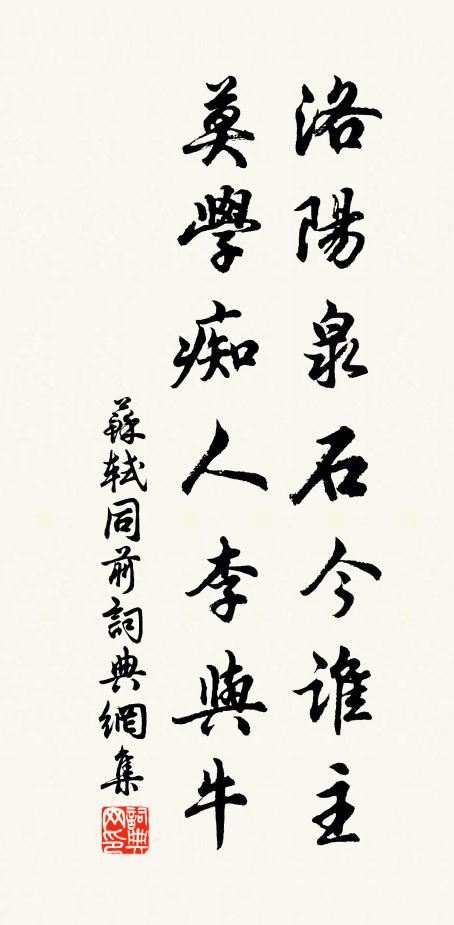 洛陽泉石今誰主
莫學痴人李與牛
蘇軾同前詞典網集
詞典網印